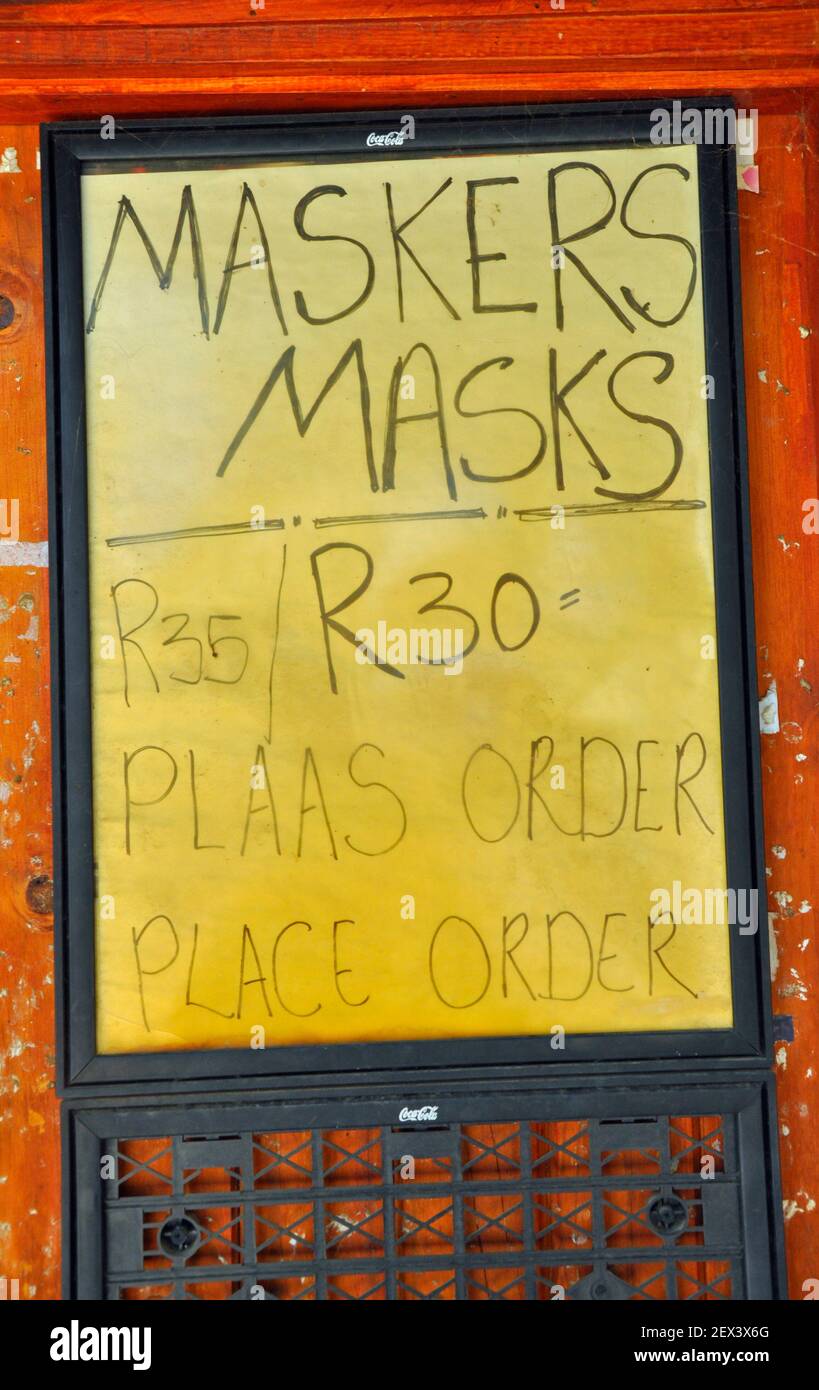 Coca-Cola
MASKERS
MASKS
R35 / R30=
PLAAS ORDER
PLACE ORDER
Coca-Cola
alamy
Image ID: 2EX3X6G
www.alamy.com